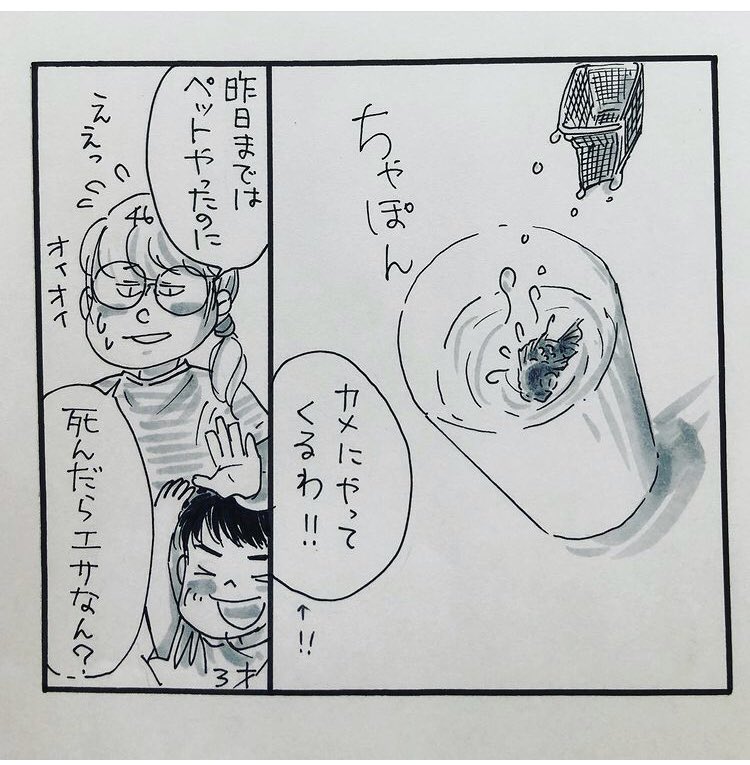 ちゃぽん
カメにやって
くるわ!!
↑!!
昨日までは
ペットやったのに
ええっ
46
オイオイ
死んだらエサなん?
3才